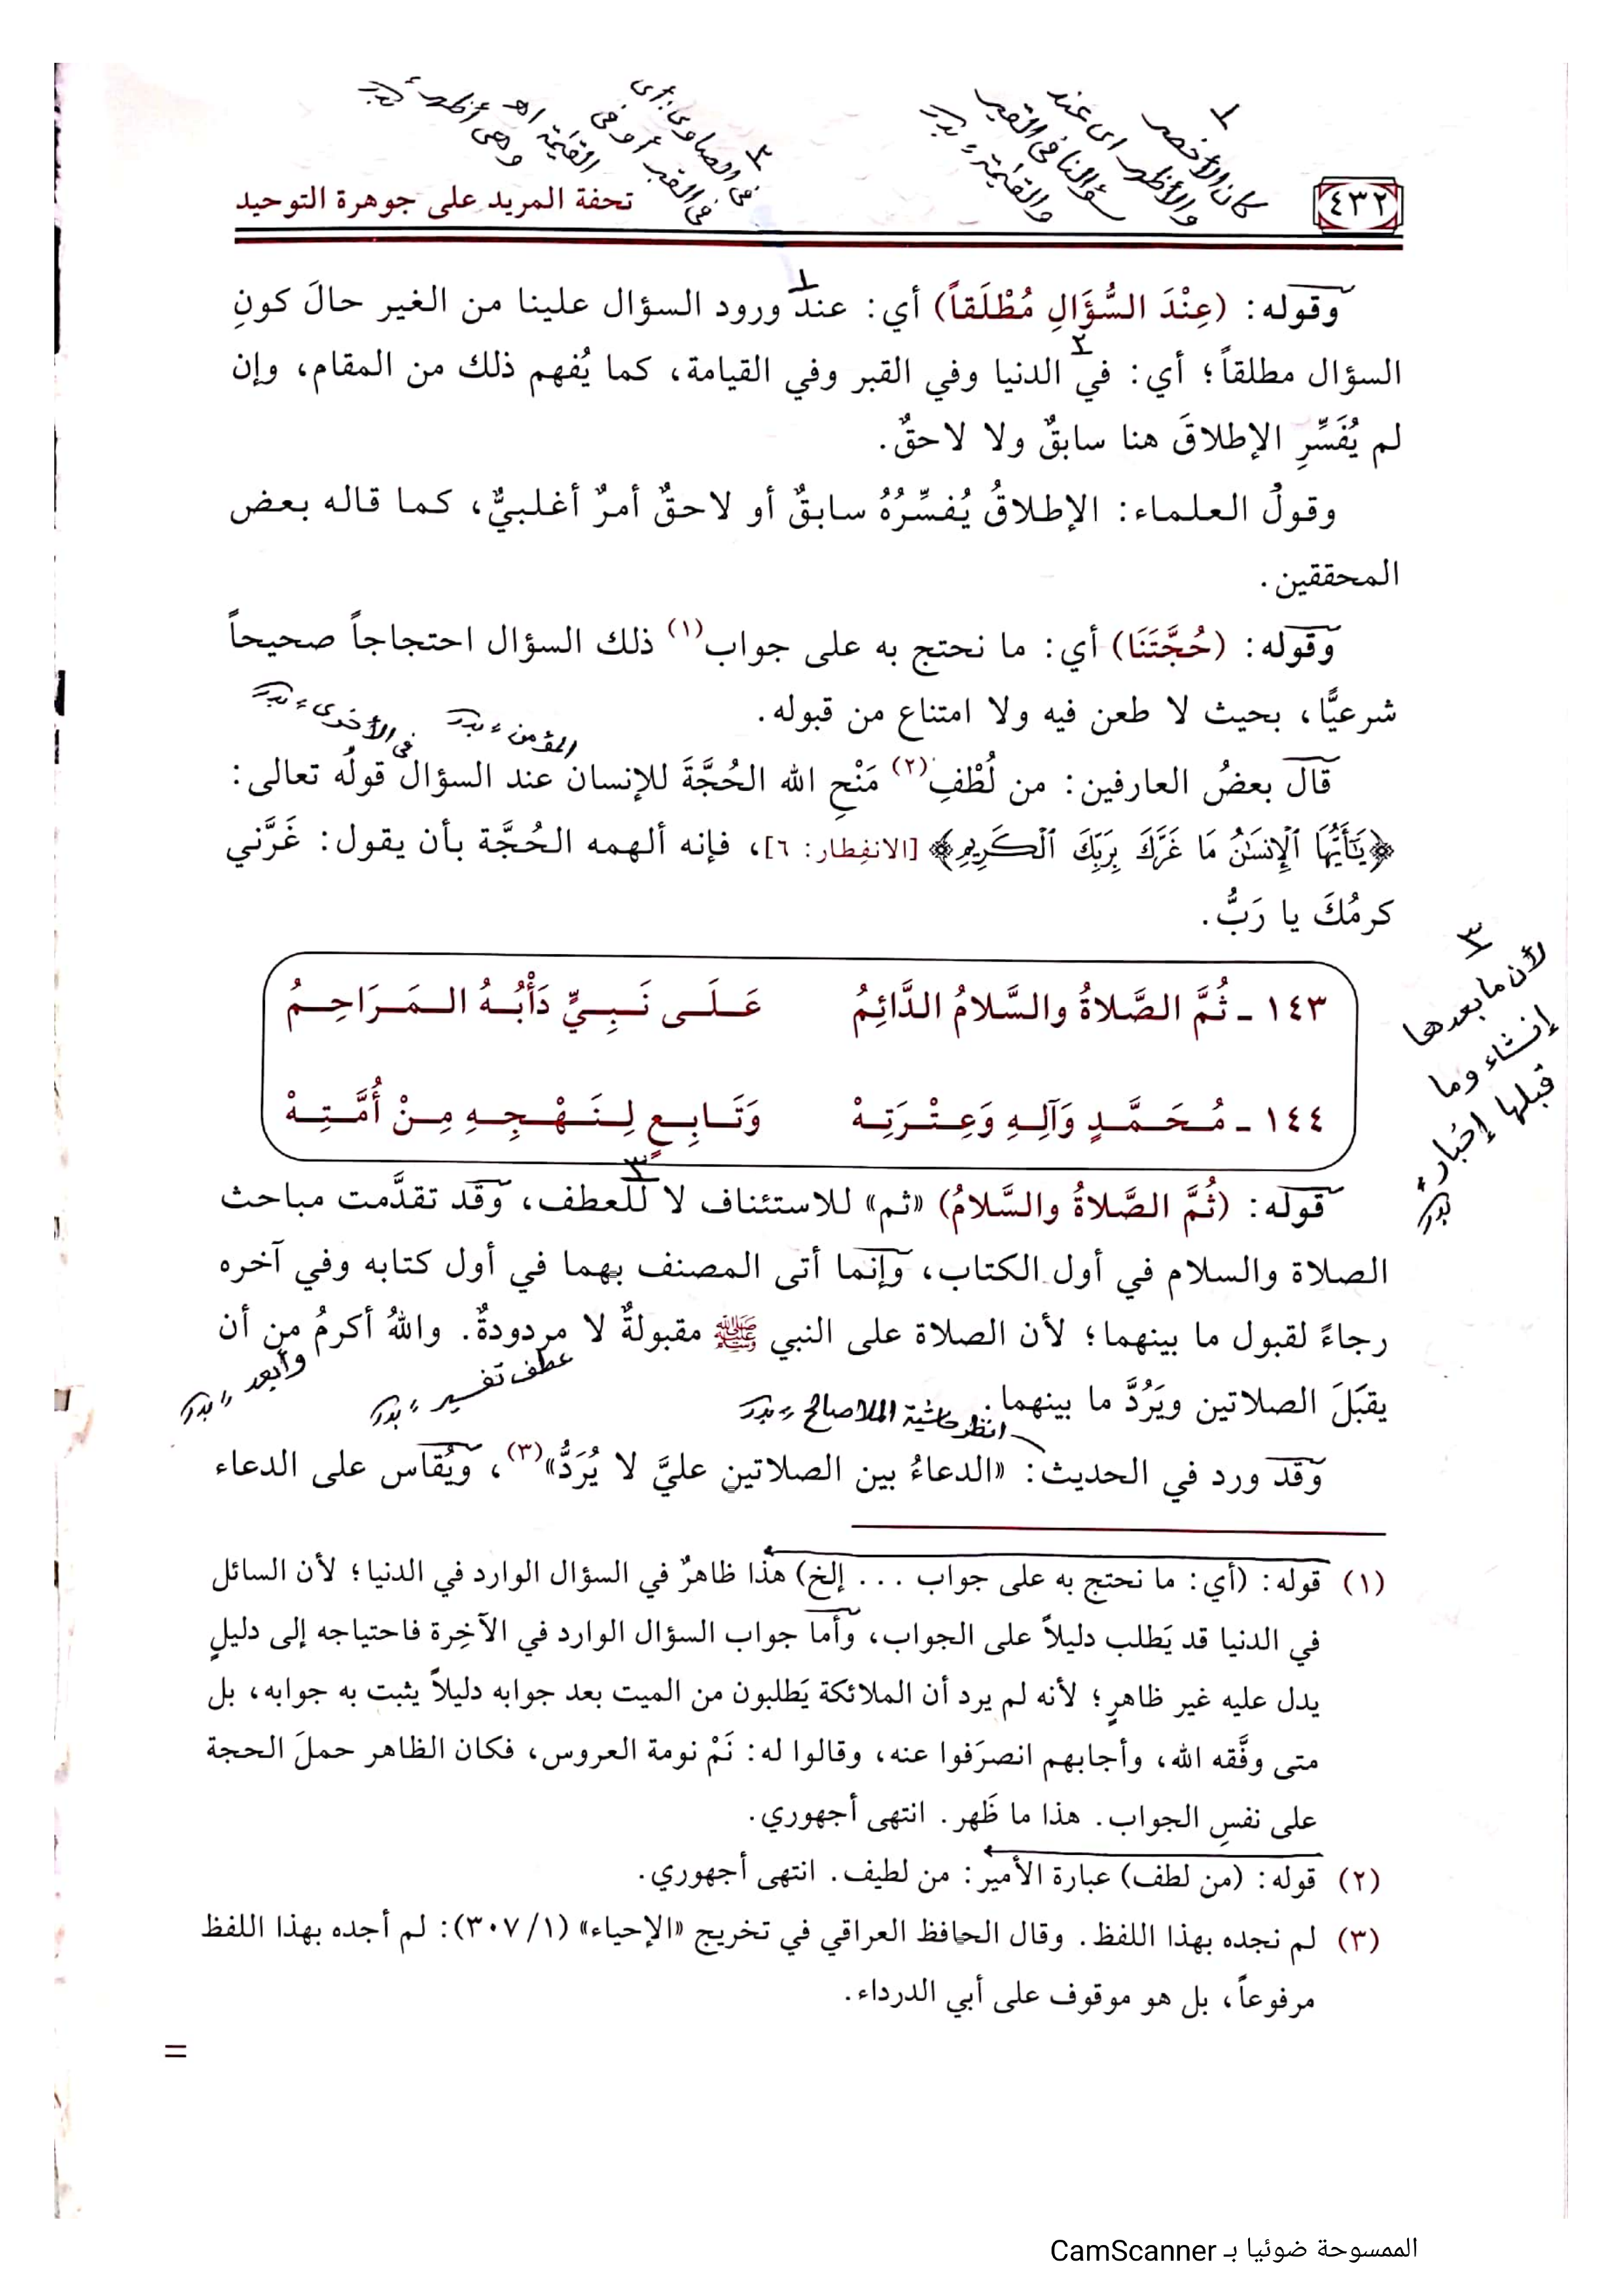 ١
كان الأخصر
والأظهر أى عند
سؤالنا في القبر
والقيٰمة ؛ بدر
٢
في الصاوى: أى
في القبر أو في
القيٰمة اهـ
وهى أظهر ؛ بدر
٤٣٢
تحفة المريد على جوهرة التوحيد
وقوله: (عِنْدَ السُّؤَالِ مُطْلَقاً) أي: عند ورود السؤال علينا من الغير حالَ كونِ
السؤال مطلقاً؛ أي: في الدنيا وفي القبر وفي القيامة، كما يُفهم ذلك من المقام، وإن
لم يُفَسِّرِ الإطلاقَ هنا سابقٌ ولا لاحقٌ.
وقولُ العلماء: الإطلاقُ يُفسِّرُهُ سابقٌ أو لاحقٌ أمرٌ أغلبيٌّ، كما قاله بعض
المحققين.
وقوله: (حُجَّتَنَا) أي: ما نحتج به على جواب(١) ذلك السؤال احتجاجاً صحيحاً
شرعيًّا، بحيث لا طعن فيه ولا امتناع من قبوله.
المؤمن ؛ بدر
في الأخرى ؛ بدر
قال بعضُ العارفين: من لُطْفِ(٢) مَنْحِ الله الحُجَّةَ للإنسان عند السؤال قولُه تعالى:
﴿يَٰٓأَيُّهَا ٱلْإِنسَٰنُ مَا غَرَّكَ بِرَبِّكَ ٱلْكَرِيمِ﴾ [الانفِطار: ٦]، فإنه ألهمه الحُجَّة بأن يقول: غَرَّني
كرمُكَ يا رَبُّ.
١٤٣ ـ ثُمَّ الصَّلاةُ والسَّلامُ الدَّائِمُ عَلَى نَبِيٍّ دَأْبُهُ المَرَاحِمُ
١٤٤ ـ مُحَمَّدٍ وَآلِهِ وَعِتْرَتِهْ وَتَابِعٍ لِنَهْجِهِ مِنْ أُمَّتِهْ
٣
لأن ما بعدها
إنشاء وما
قبلها إخبار ؛
بدر
قوله: (ثُمَّ الصَّلاةُ والسَّلامُ) «ثم» للاستئناف لا للعطف، وقد تقدَّمت مباحث
الصلاة والسلام في أول الكتاب، وإنما أتى المصنف بهما في أول كتابه وفي آخره
رجاءً لقبول ما بينهما؛ لأن الصلاة على النبي ﷺ مقبولةٌ لا مردودةٌ. واللهُ أكرمُ من أن
عطف تفسير ؛ بدر
وأبعد ؛ بدر
يقبَلَ الصلاتين ويَرُدَّ ما بينهما.
انظر حاشية الملا صالح ؛ بدر
وقد ورد في الحديث: «الدعاءُ بين الصلاتين عليَّ لا يُرَدُّ»(٣)، ويُقاس على الدعاء
(١) قوله: (أي: ما نحتج به على جواب ... إلخ) هذا ظاهرٌ في السؤال الوارد في الدنيا؛ لأن السائل
في الدنيا قد يَطلب دليلاً على الجواب، وأما جواب السؤال الوارد في الآخِرة فاحتياجه إلى دليلٍ
يدل عليه غير ظاهرٍ؛ لأنه لم يرد أن الملائكة يَطلبون من الميت بعد جوابه دليلاً يثبت به جوابه، بل
متى وفَّقه الله، وأجابهم انصرَفوا عنه، وقالوا له: نَمْ نومة العروس، فكان الظاهر حملَ الحجة
على نفسِ الجواب. هذا ما ظَهر. انتهى أجهوري.
(٢) قوله: (من لطف) عبارة الأمير: من لطيف. انتهى أجهوري.
(٣) لم نجده بهذا اللفظ. وقال الحافظ العراقي في تخريج «الإحياء» (١/ ٣٠٧): لم أجده بهذا اللفظ
مرفوعاً، بل هو موقوف على أبي الدرداء.
=
الممسوحة ضوئيا بـ CamScanner